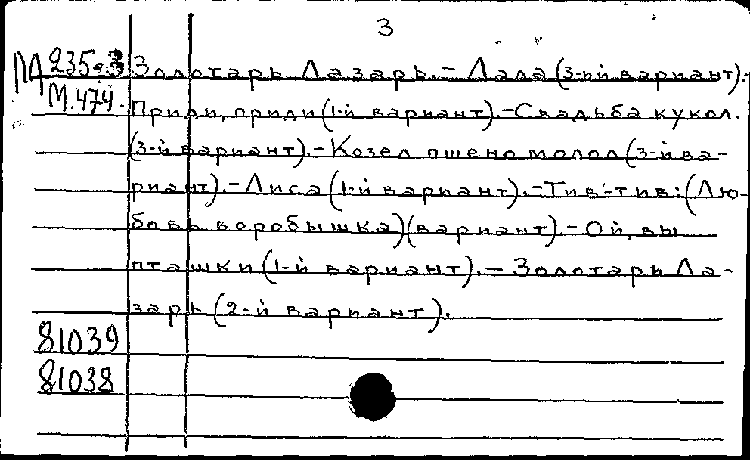 3
ПА 235.3 Золотарь Лазарь.- Лада (3-ий вариант).-
М.474. Приди, приди (1-й вариант).-Свадьба кукол.
(3-й вариант).-Козел пшено молол (3-й ва-
риант).-Лиса (1-й вариант).-Тив-тив:(Лю-
бовь воробышка)(вариант).-Ой, вы
пташки (1-й вариант).-Золотарь Ла-
зарь (2-й вариант).
81039
81038